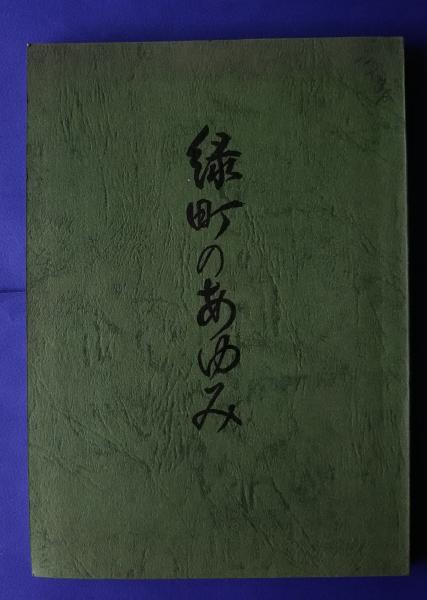 緑町のあゆみ